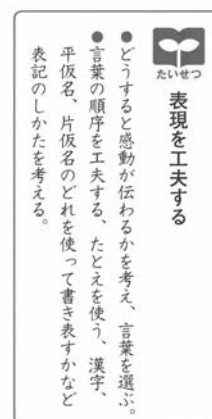 たいせつ
表現を工夫する
●どうすると感動が伝わるかを考え、言葉を選ぶ。
●言葉の順序を工夫する、たとえを使う、漢字、
平仮名、片仮名のどれを使って書き表すかなど
表記のしかたを考える。